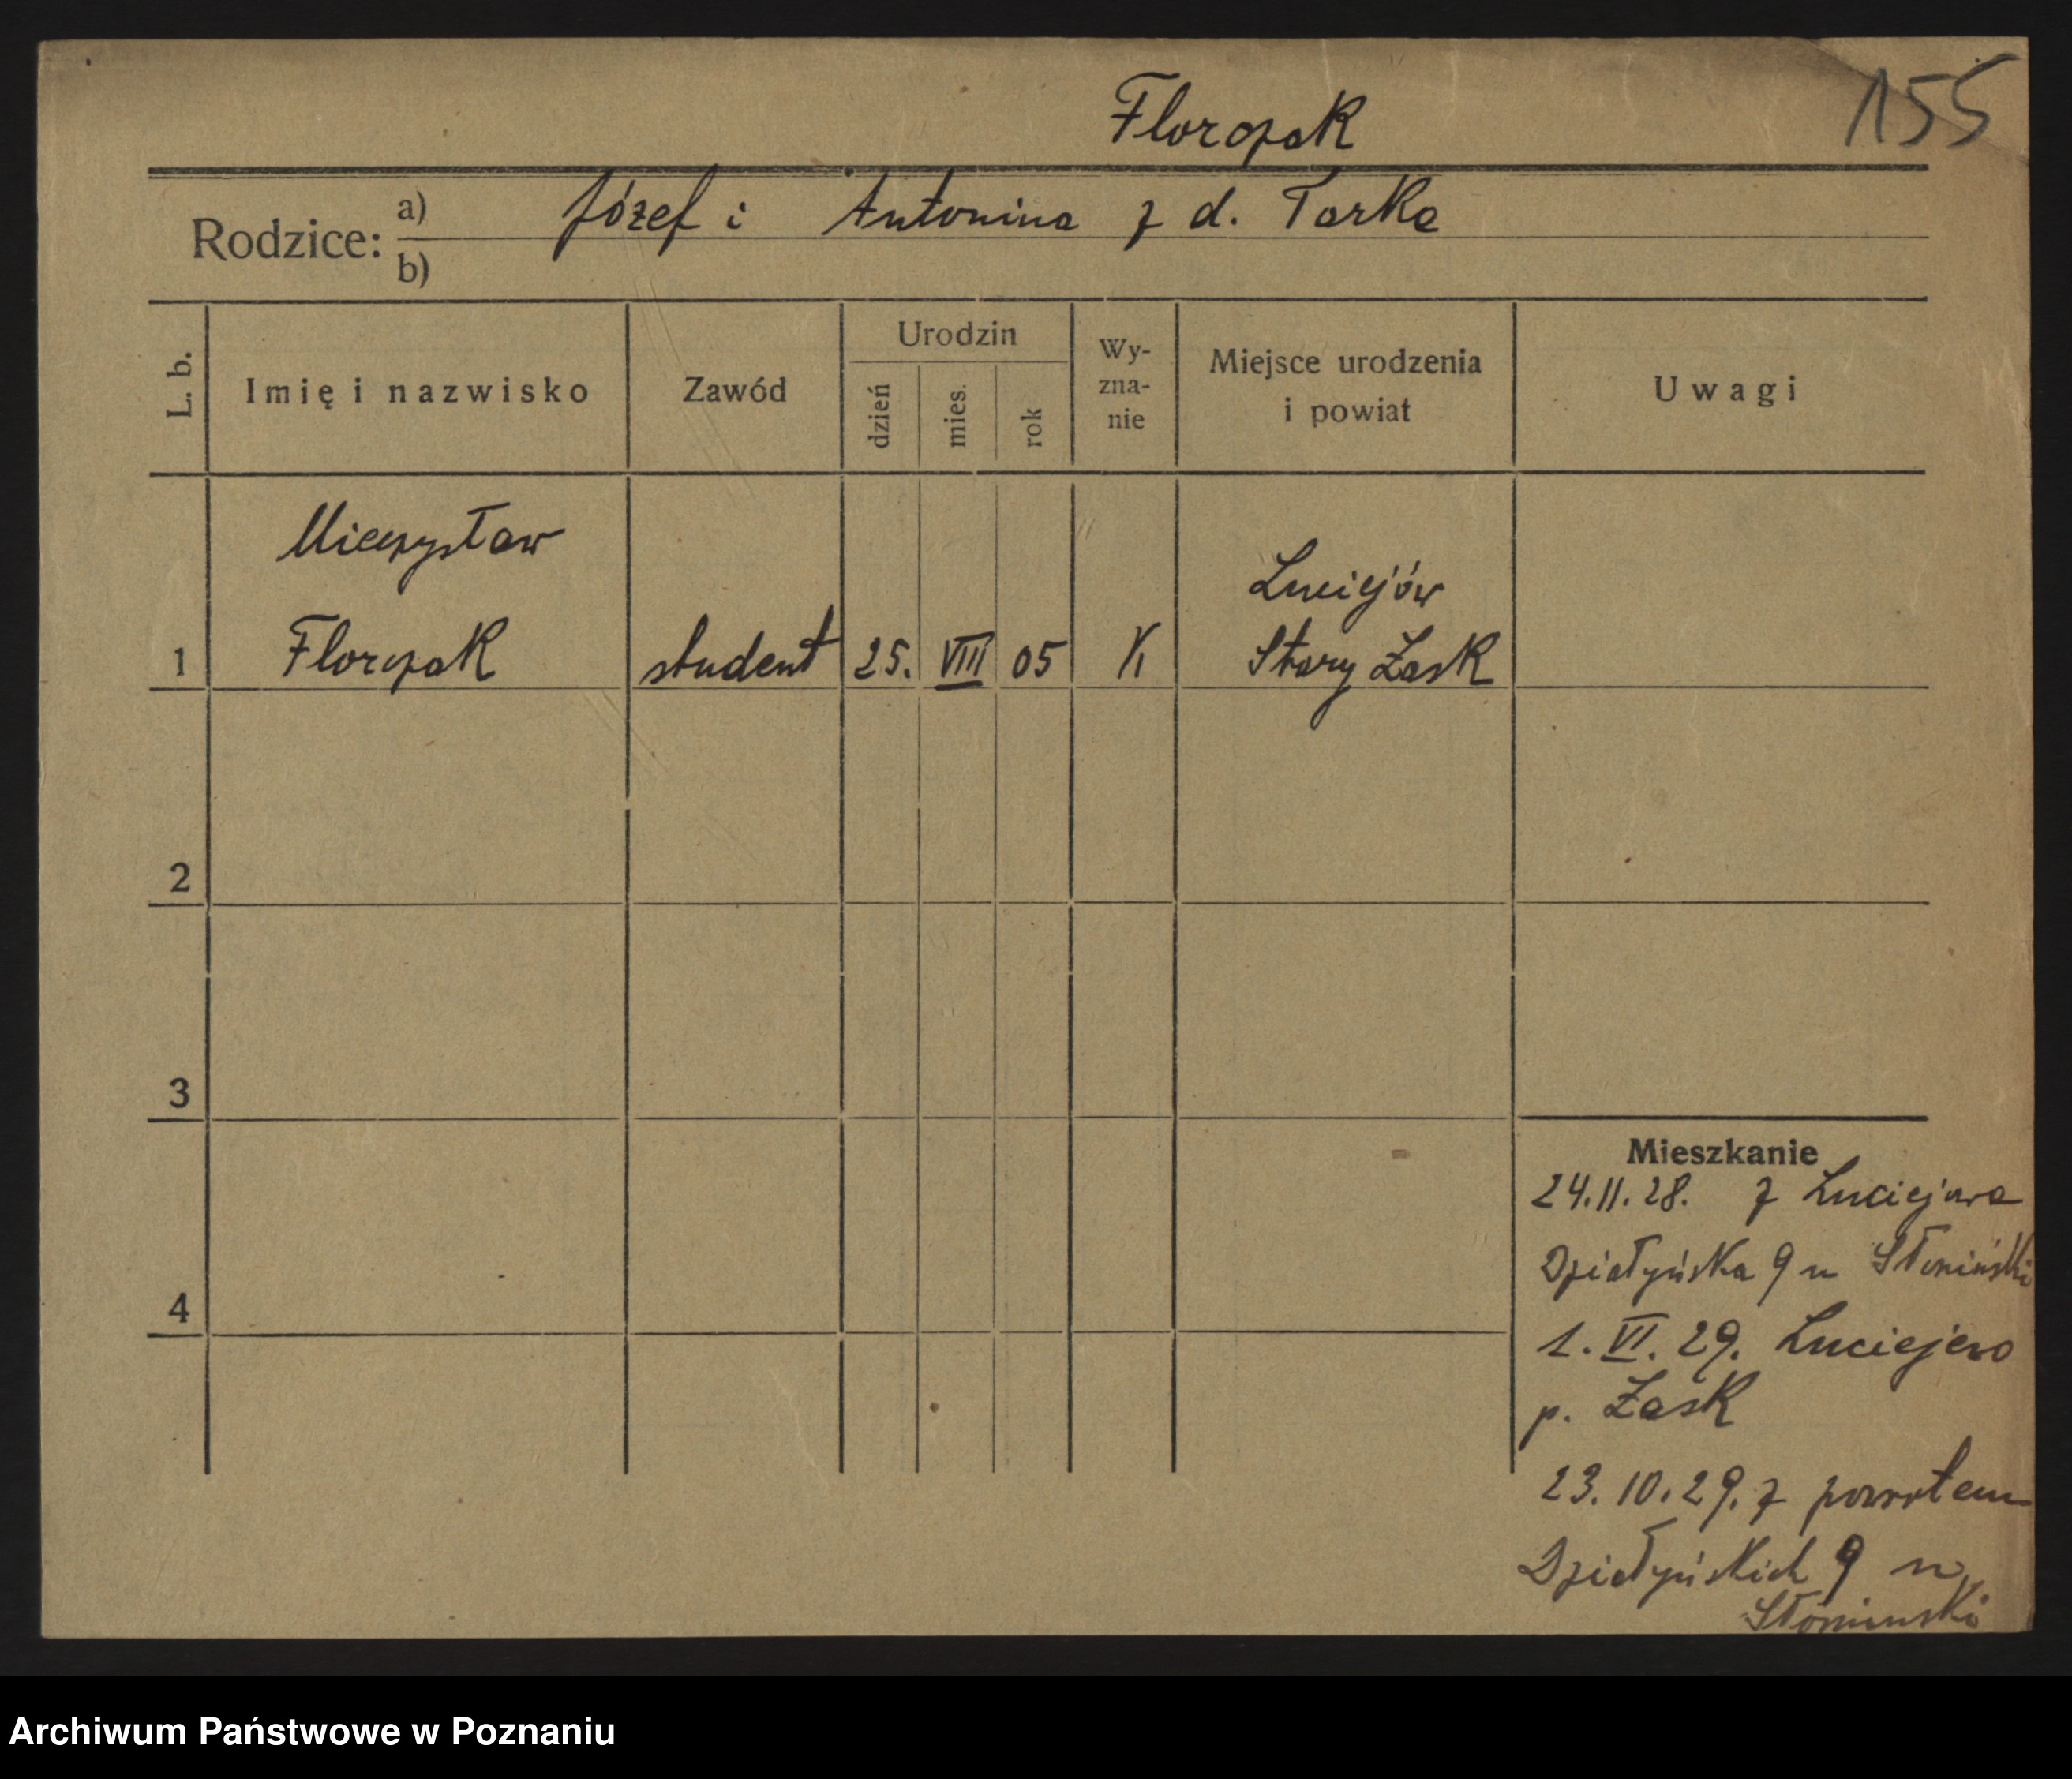 Florczak
155
Rodzice:
a) Józef i Antonina z d. Tarka
b)
L. b.
Imię i nazwisko
Zawód
Urodzin
dzień
mies.
rok
Wy-
zna-
nie
Miejsce urodzenia
i powiat
Uwagi
Mieczysław
Luciejów
1 Florczak student 25. VIII 05 K Stary Łask
2
3
4
Mieszkanie
24.11.28. z Luciejowa
Działyńska 9 u Słoniński
1. VI. 29. Luciejewo
p. Łask
23.10.29. z powrotem
Działyńskich 9 u
Słoniński
Archiwum Państwowe w Poznaniu